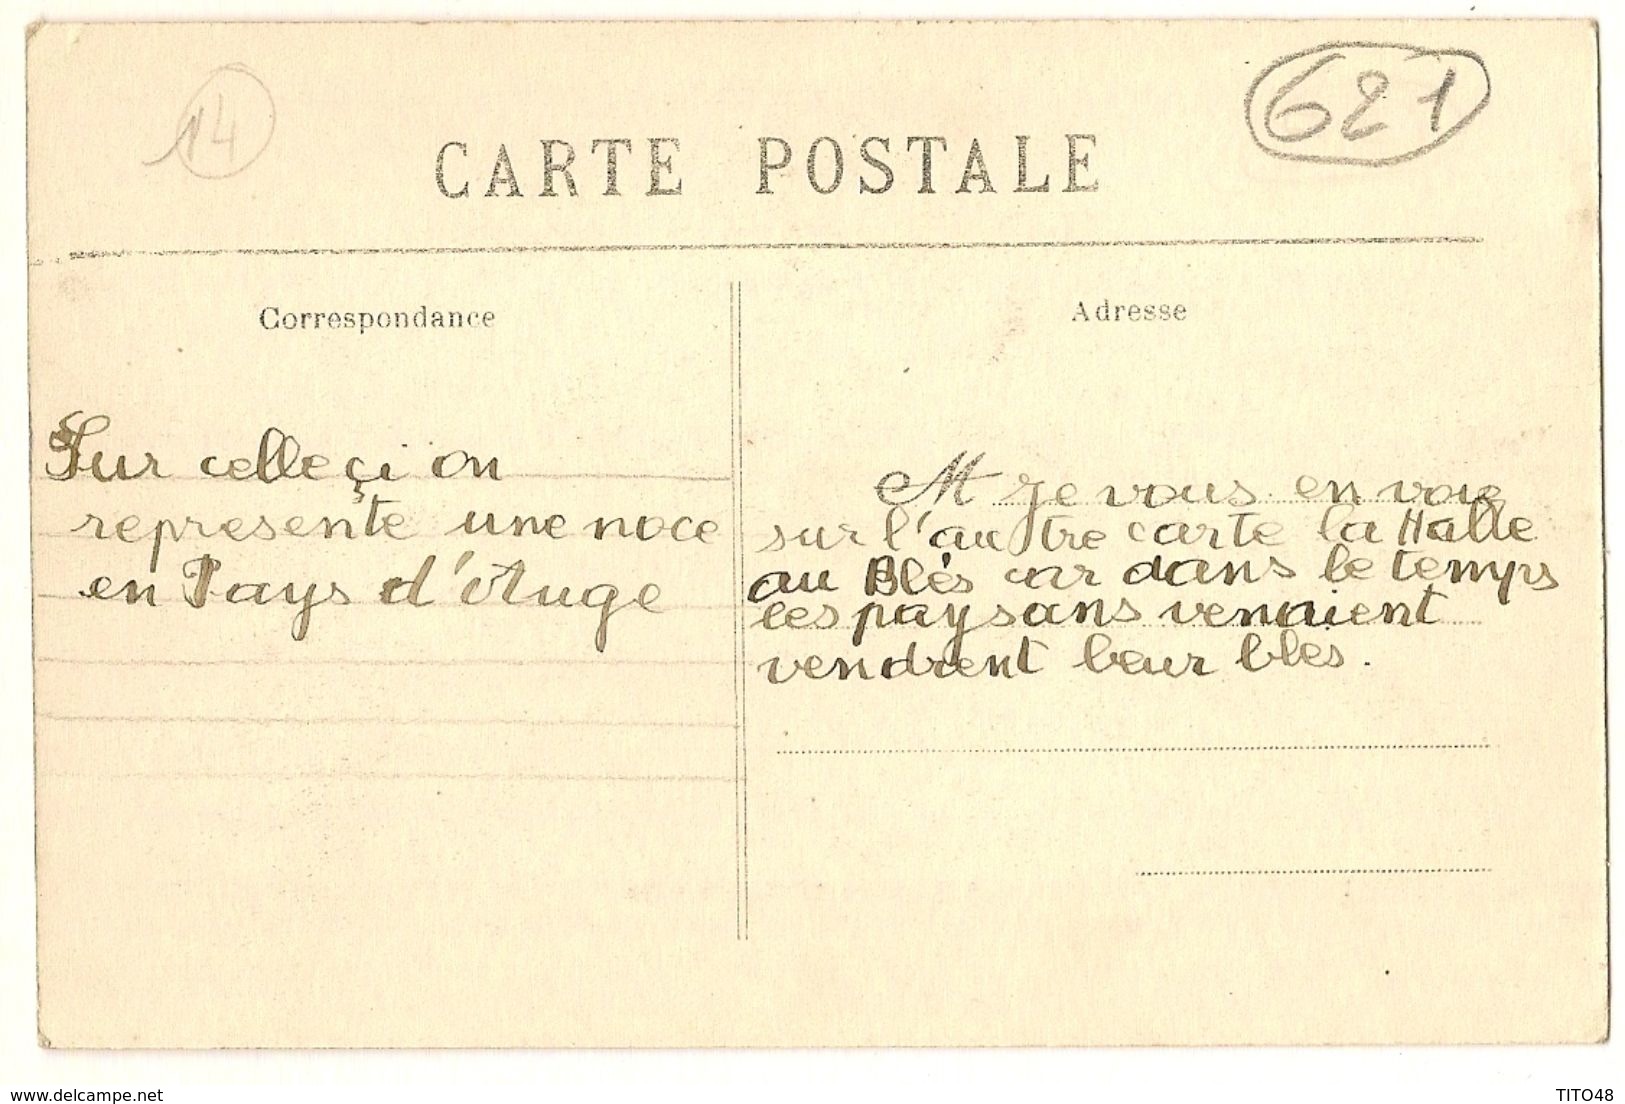 14
621
CARTE POSTALE
Correspondance
Adresse
Sur celle çi on
represente une noce
en Pays d'Auge
M je vous en voie
sur l'au tre carte la Halle
au Blés car dans le temps
les paysans venaient
vendrent leur blés.
delcampe.net
TITO48